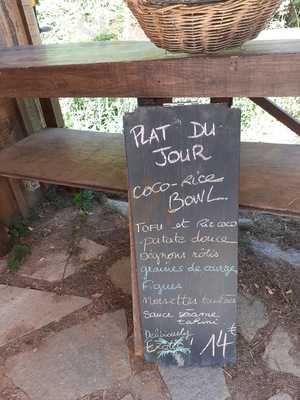 PLAT DU
JOUR
COCO-RICE
BOWL
TOFU et Riz coco
patate douce
oignons rôtis
graines de courge
Figues
Noisettes
Sauce sésame
tahini
Deliciously
Exotic!
14€